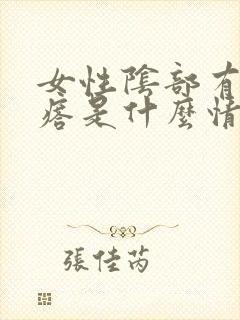 女性陰部有
痞是什麼情
張佳芮